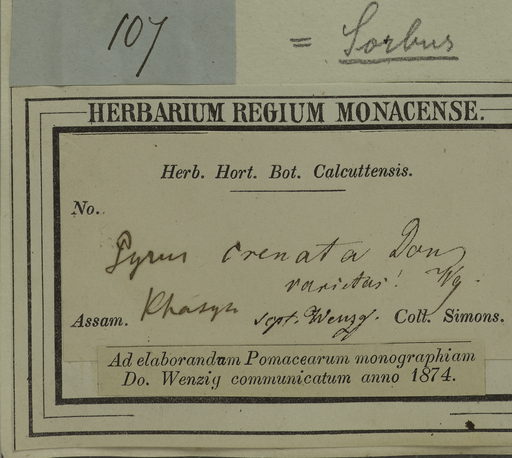 107
= Sorbus
HERBARIUM REGIUM MONACENSE.
Herb. Hort. Bot. Calcuttensis.
No.
Pyrus crenata Don
varietas! Wg.
Assam. Khasya sept. Wenzg. Coll. Simons.
Ad elaborandum Pomacearum monographiam
Do. Wenzig communicatum anno 1874.